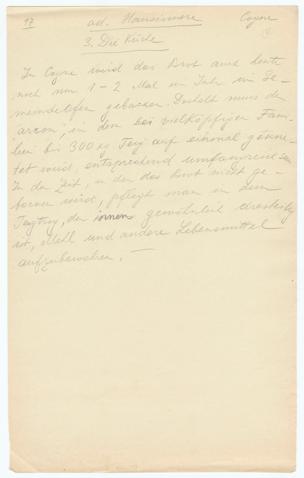 17 ad. Hausinnere Cogne
3. Die Küche
In Cogne wird das Brot auch heute
noch nur 1-2 Mal im Jahr im Ge-
meindeofen gebacken. Deshalb muss der
arcon, in dem bei vielköpfigen Fami-
lien bis 300 kg Teig auf einmal geknetet
wird, entsprechend umfangreich sein.
In der Zeit, in der das Brot nicht ge-
backen wird, pflegt man in dem
Teigtrog, der innen gewöhnlich dreiteilig
ist, Mehl und andere Lebensmittel
aufzubewahren. —